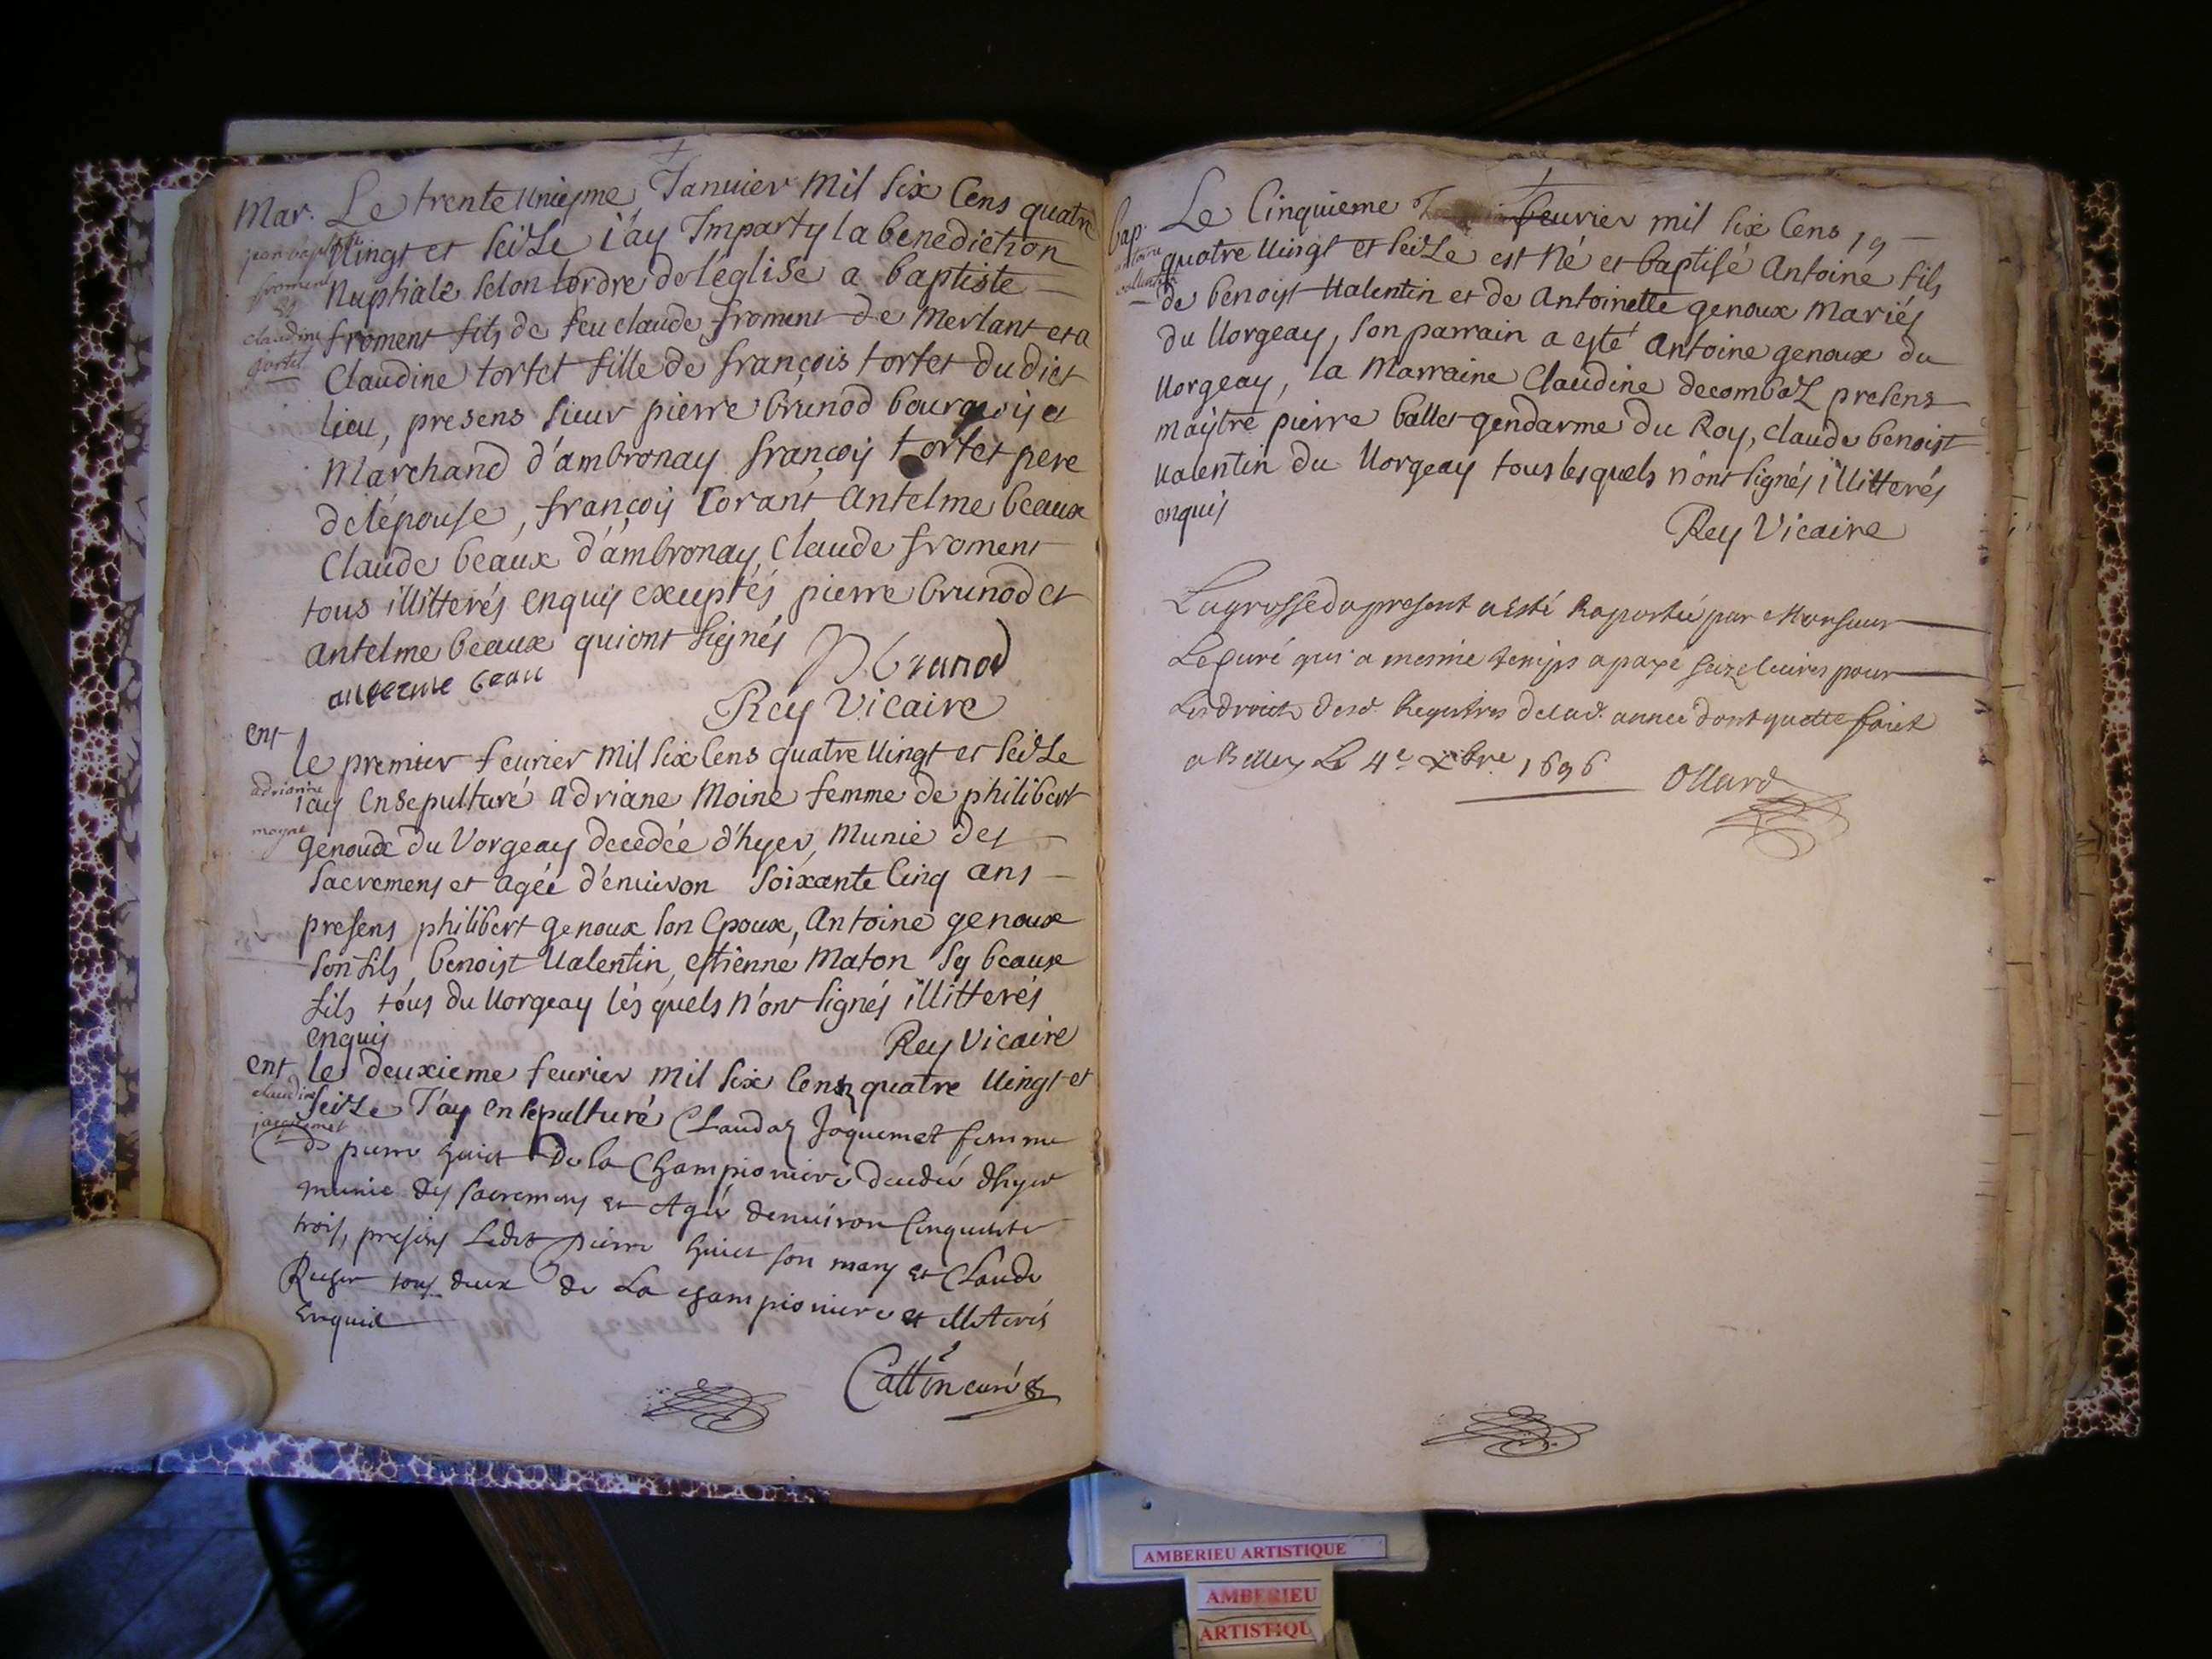 Mar. Le trente Unieyme Januier Mil Six Cens quatre
jean baptiste Uingt et SeiZe i'ay Imparty la benediction
froment et Nuptiale Selon lordre de léglise a baptiste
claudine froment fils de feu claude froment de Merlant et a
tortet Claudine tortet fille de françois tortet du dict
lieu, presens Sieur pierre brunod bourgeois et
Marchand d'ambronay françois tortet pere
de lépouse, françois Corant Antelme beaux
Claude beaux d'ambronay, Claude froment
tous illitterés enquis exceptés pierre brunod et
Antelme beaux qui ont Signés
P brunod
antelme beau
Rey Vicaire
ent
le premier feurier Mil Six Cens quatre Uingt et SeiZe
adrianne i'ay ensepulturé adriane Moine femme de philibert
moyne genoux du Vorgeay decedée d'hyer, Munie des
Sacremens et agée d'enuiron Soixante Cinq ans
presens philibert genoux Son Epoux, Antoine genoux
Son fils, benoist Ualentin, estienne Maton Ses beaux
fils tous du Uorgeay lés quels n'ont Signés illitterés
enquis Rey Vicaire
ent le deuxieme feurier mil Six Cens quatre Uingt et
claudine SeiZe J'ay ensepulturé Claudaz Jaquemet femme
jacquemet de pierre huict De la Championiere decedée dhyer
munie des sacremens et Agée denuiron Cinquante
trois, presens Ledit pierre huict son mary et Claude
Roger tous deux de La championiere et illiterés
Enquis
Cattin curé
bap. Le Cinquieme feurier mil Six Cens 19
antoine quatre Uingt et SeiZe est Né et baptisé Antoine fils
vallentin de benoist Ualentin et de Antoinette genoux Mariés
du Uorgeay, Son parrain a esté Antoine genoux du
Uorgeay, la Marraine Claudine decombaZ presens
maystre pierre ballet gendarme du Roy, claude benoist
Ualentin du Uorgeay tous lesquels n'ont Signés illitterés
enquis
Rey Vicaire
La grosse du present a Esté Raportée par Monsieur
Le Curé qui a mesme temps a payé seize liures pour
Les droits desd. Registres de lad. année dont quitte faict
a Belley Le 4e Xbre 1696 Ollard
AMBERIEU ARTISTIQUE
AMBERIEU
ARTISTIQU